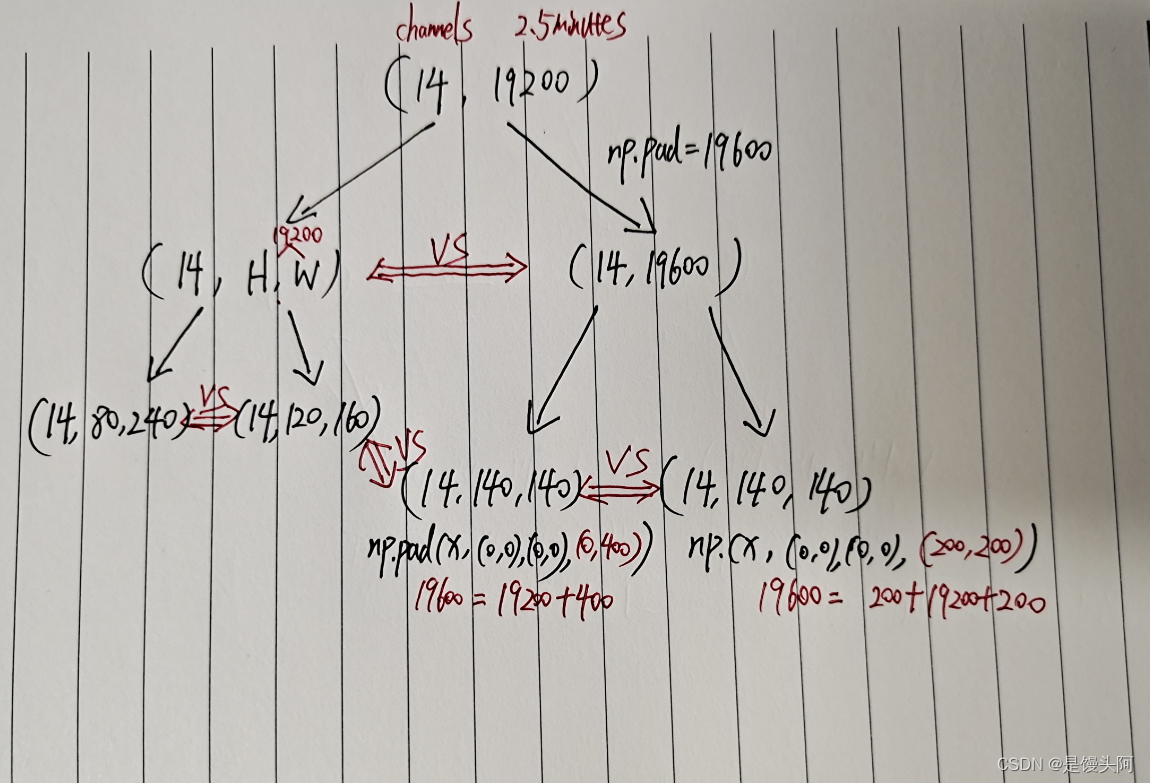 channels 2.5minutes
(14, 19200)
np.pad=19600
19200
(14, H, W) VS (14, 19600)
VS
(14, 80, 240) (14, 120, 160)
VS
(14, 140, 140) VS (14, 140, 140)
np.pad(x, (0,0),(0,0),(0,400)) np.(x, (0,0),(0,0), (200,200))
19600 = 19200+400 19600 = 200+19200+200
CSDN @是馒头阿